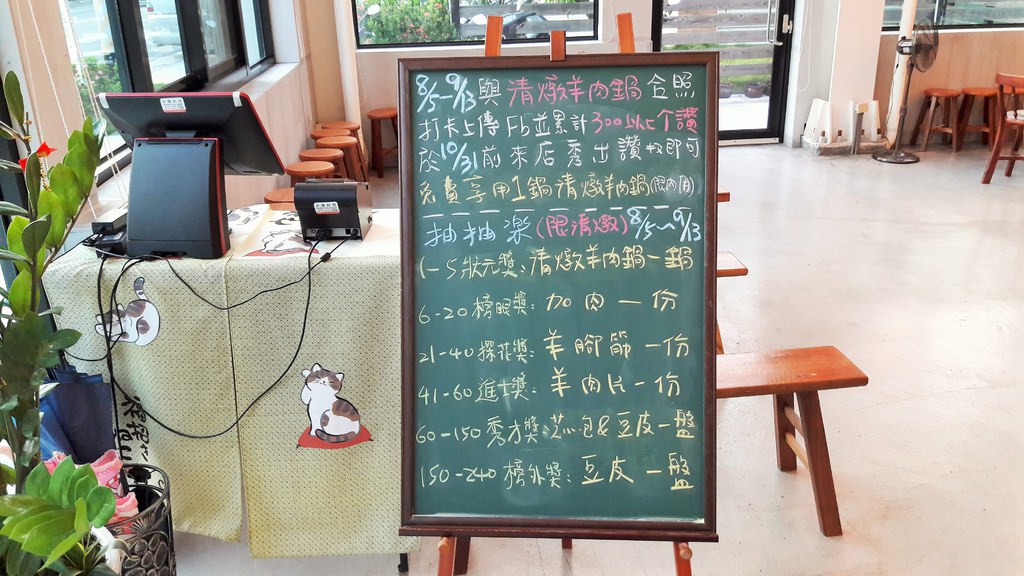 8/5~9/13與清燉羊肉鍋合照
打卡上傳Fb並累計300以上个讚
於10/31前來店秀出讚數即可
免費享用1鍋清燉羊肉鍋(限內用)
抽抽樂(限清燉)8/5~9/13
1-5狀元獎:清燉羊肉鍋一鍋
6-20榜眼獎:加肉一份
21-40探花獎:羊腳筋一份
41-60進士獎:羊肉片一份
60-150秀才獎:芯包&豆皮一盤
150-240榜外獎:豆皮一盤